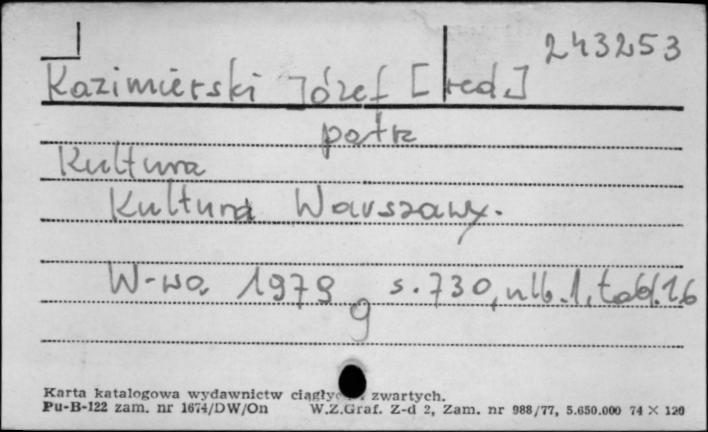 243253
Kazimierski Józef [red.]
patrz
Kultura
Kultura Warszawy.
W-wa 1979 s. 730, nlb. 1, tabl. 16
9
Karta katalogowa wydawnictw ciągłych i zwartych.
Pu-B-122 zam. nr 1674/DW/On W.Z.Graf. Z-d 2, Zam. nr 988/77, 5.650.000 74 × 120